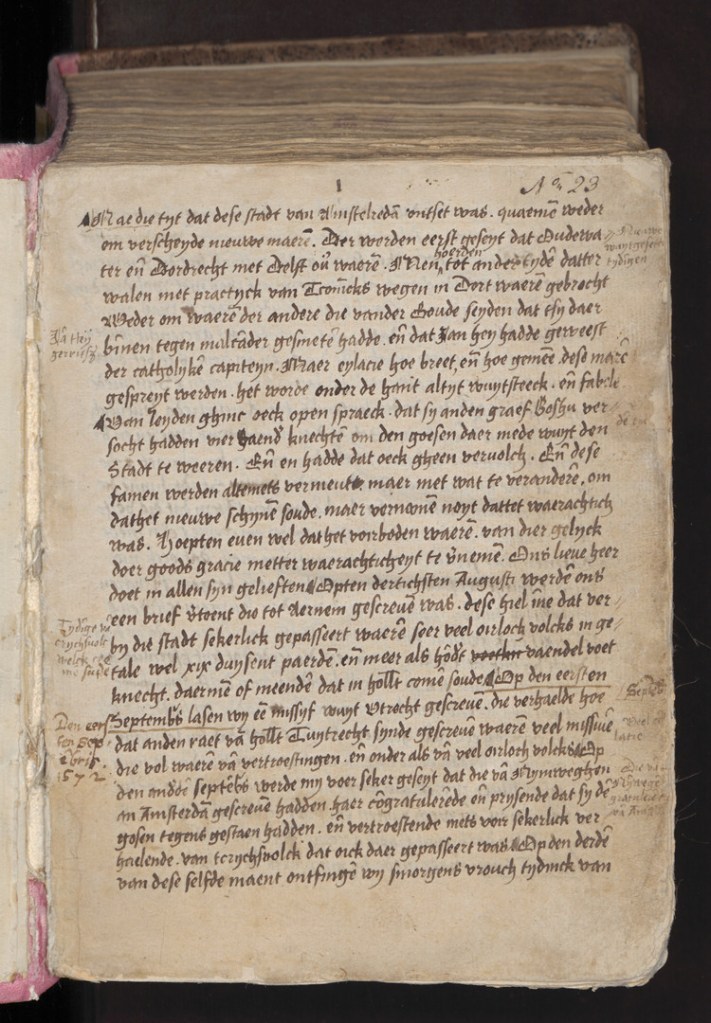 1
No 23
Nae die tyt dat dese stadt van Amstelredā ontset was. quaemē weder
om verscheyde nieuwe maerē. Der worden eerst geseyt dat Oudewa
ter eñ Dordrecht met Delft waerē. Men hoerden tot ander tydē datter
walen met practyck van Conicks wegen in Dort waerē gebrocht
Weder om waerē der andere die vander Goude seyden dat tsy daer
binnen tegen malcāder gesmetē hadde. eñ dat Jan hey hadde geweest
der catholykē capiteyn. Maer eylacie hoe breet, eñ hoe gemeē dese marē
gespreyt werden. het worde onder de hant altyt wuytsteeck. eñ fabele
Van leyden ghinc oeck open spraeck. dat sy anden graef Boshu ver
socht hadden vier vaend knechtē om den goesen daer mede wuyt den
Stadt te weeren. Eñ en hadde dat oeck gheen vervolch. Eñ dese
famen werden altemets vermeut. maer met wat te veranderē, om
dathet nieuwe schynē soude. maer vernomē noyt dattet waerachtich
was. Hoepten even wel dathet voirboden waerē. van dier gelyck
doer goods gracie metter waerachticheyt te vnemē. Ons lieve heer
doet in allen syn gelieften. Opten dertichsten Augusti werdē ons
een brief vtoent die tot Aernem gescreuē was. dese hiel inne dat ver
by die stadt sekerlick gepasseert waerē seer veel oirloch volcks in ge
tale wel xix duysent paerden. eñ meer als hōdt vaendel voet
knecht. daermē of meende dat in hollt comē soude. Op den eersten
Septemb's lasen wy eē missyf wuyt Utrecht gescreuē. die verhaelde hoe
dat anden raet vā hollt Tuytrecht synde gescreuē waeren veel missiuē
die vol waerē vā vertroestingen. eñ onder als vā veel oirloch volcks. Op
den anderē septēbs werde my voer seker geseyt dat die vā Nymweghen
an Amsterdā gescreuē hadden. haer cōgratulerēde eñ prysende dat sy dē
gosen tegens gestaen hadden. eñ vertroestende mets voir sekerlick ver
haelende. van tcrychsvolck dat oick daer gepasseert was. Op den derdē
van dese selfde maent ontfingē wy smorgens vrouch tydinck van
Jā Heij
geweest
Tydige va
crychsvolc
Den eers
ten Sep
tēbris
1572
Nieuwe
tydigen
Septēb